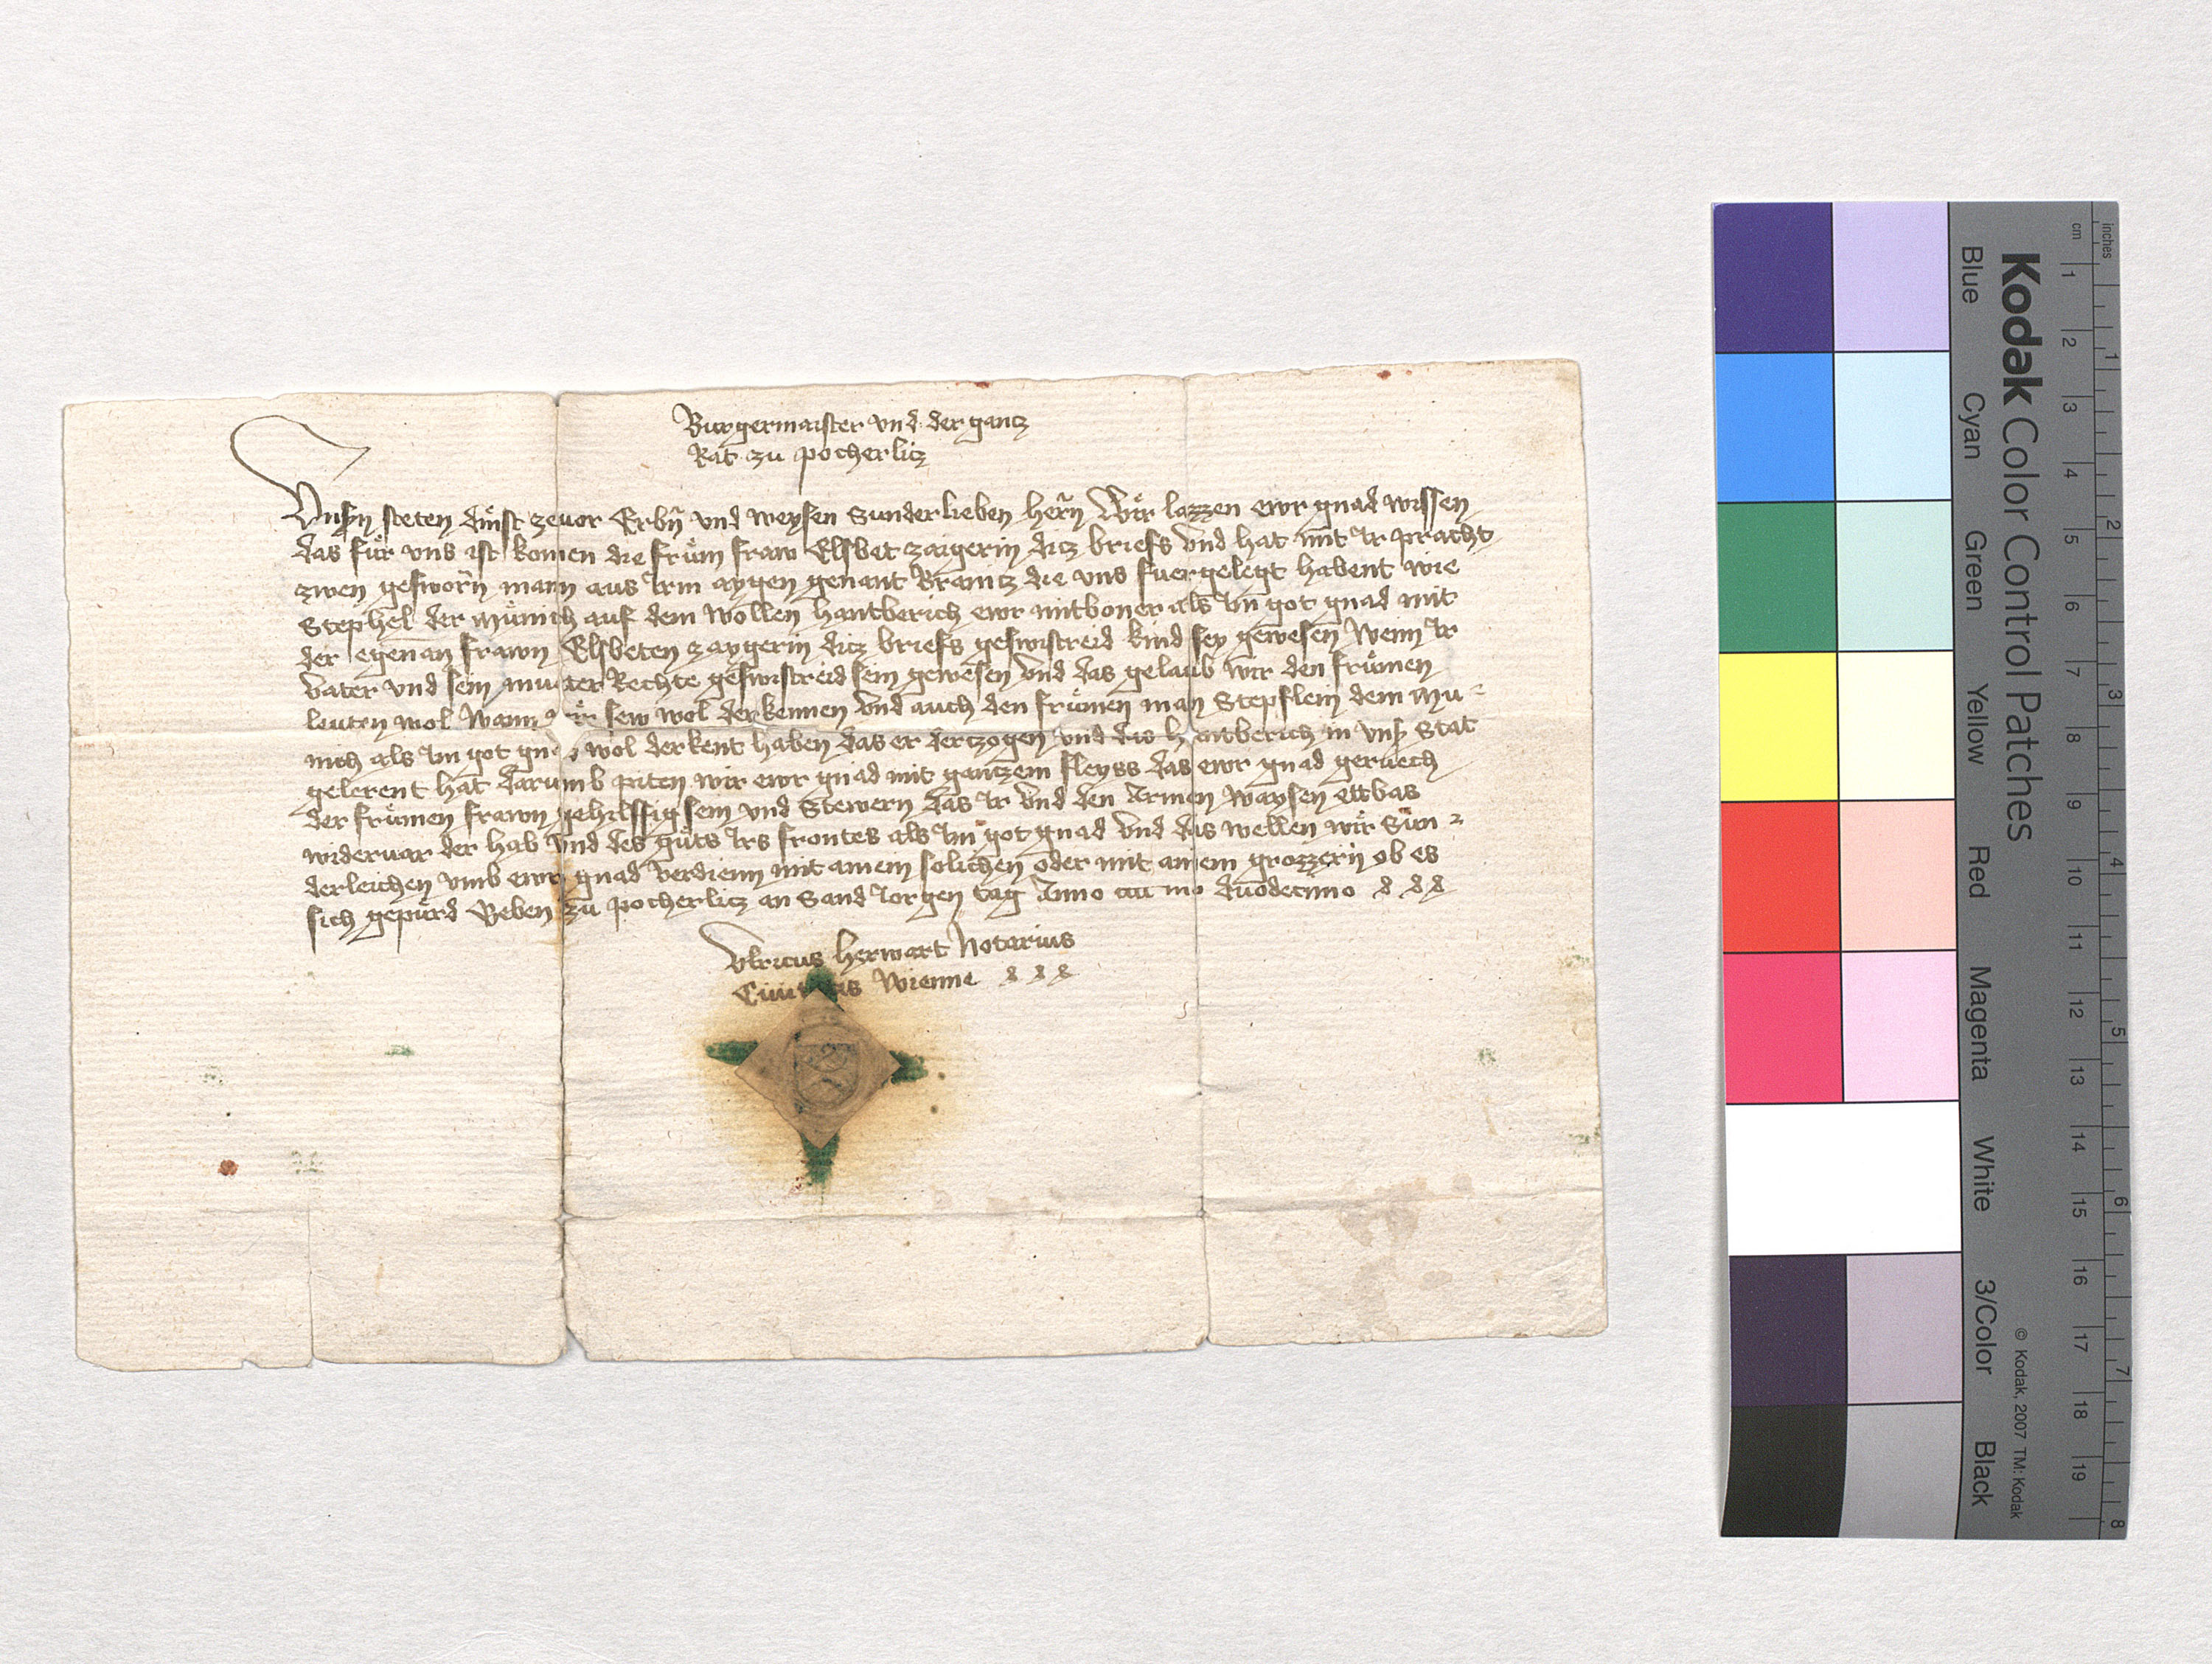 Burgermaister vnd der gancz
Rat zu pocherlicz
Vnsn steten dinst zeuor Erbn vnd weysen Sunder lieben hern Wir lazzen ewr gnad wissen
das für vns ist komen die frum fraw Elsbet zaigerin dicz briefs vnd hat mit Ir pracht
zwen gesworn mann aus Irm aygen genant Bramcz die vns fuergelegt habent wie
Stephel der münich auf dem Wollen hantberich ewr mitboner als Im got gnad mit
der egenan frawn Elsbeten zaygerin dicz briefs geswistreid kind sey gewesen Wenn Ir
vater vnd sein muter Rechte geswistreid sein gewesen vnd das gelaub wir den frümen
leuten wol Wann wir sew wol derkennen vnd auch den frümen man Stepflein dem mu-
nich als Im got gnad wol derkent haben das er derczogen vnd das hantberich in vns Stat
gelerent hat darumb piten wir ewr gnad mit ganczem fleyss das ewr gnad geruech
der frümen frawn gehilffig sein vnd Stewern das Ir vnd den Armen Waysen ettbas
wideruar der hab vnd des guts Irs frontes als Im got gnad vnd das wellen wir Sun-
derleichen vmb ewr gnad verdienn mit amem solichen oder mit amem grozzern ob es
sich gepürd Geben zu pocherlicz an Sand Jorgen tag Anno duodecimo
Vlricus herwart Notarius
Ciuitatis Wienne
Kodak Color Control Patches
Blue Cyan Green Yellow Red Magenta White 3/Color Black
© Kodak, 2007 TM: Kodak
inches 1 2 3 4 5 6 7 8
cm 1 2 3 4 5 6 7 8 9 10 11 12 13 14 15 16 17 18 19